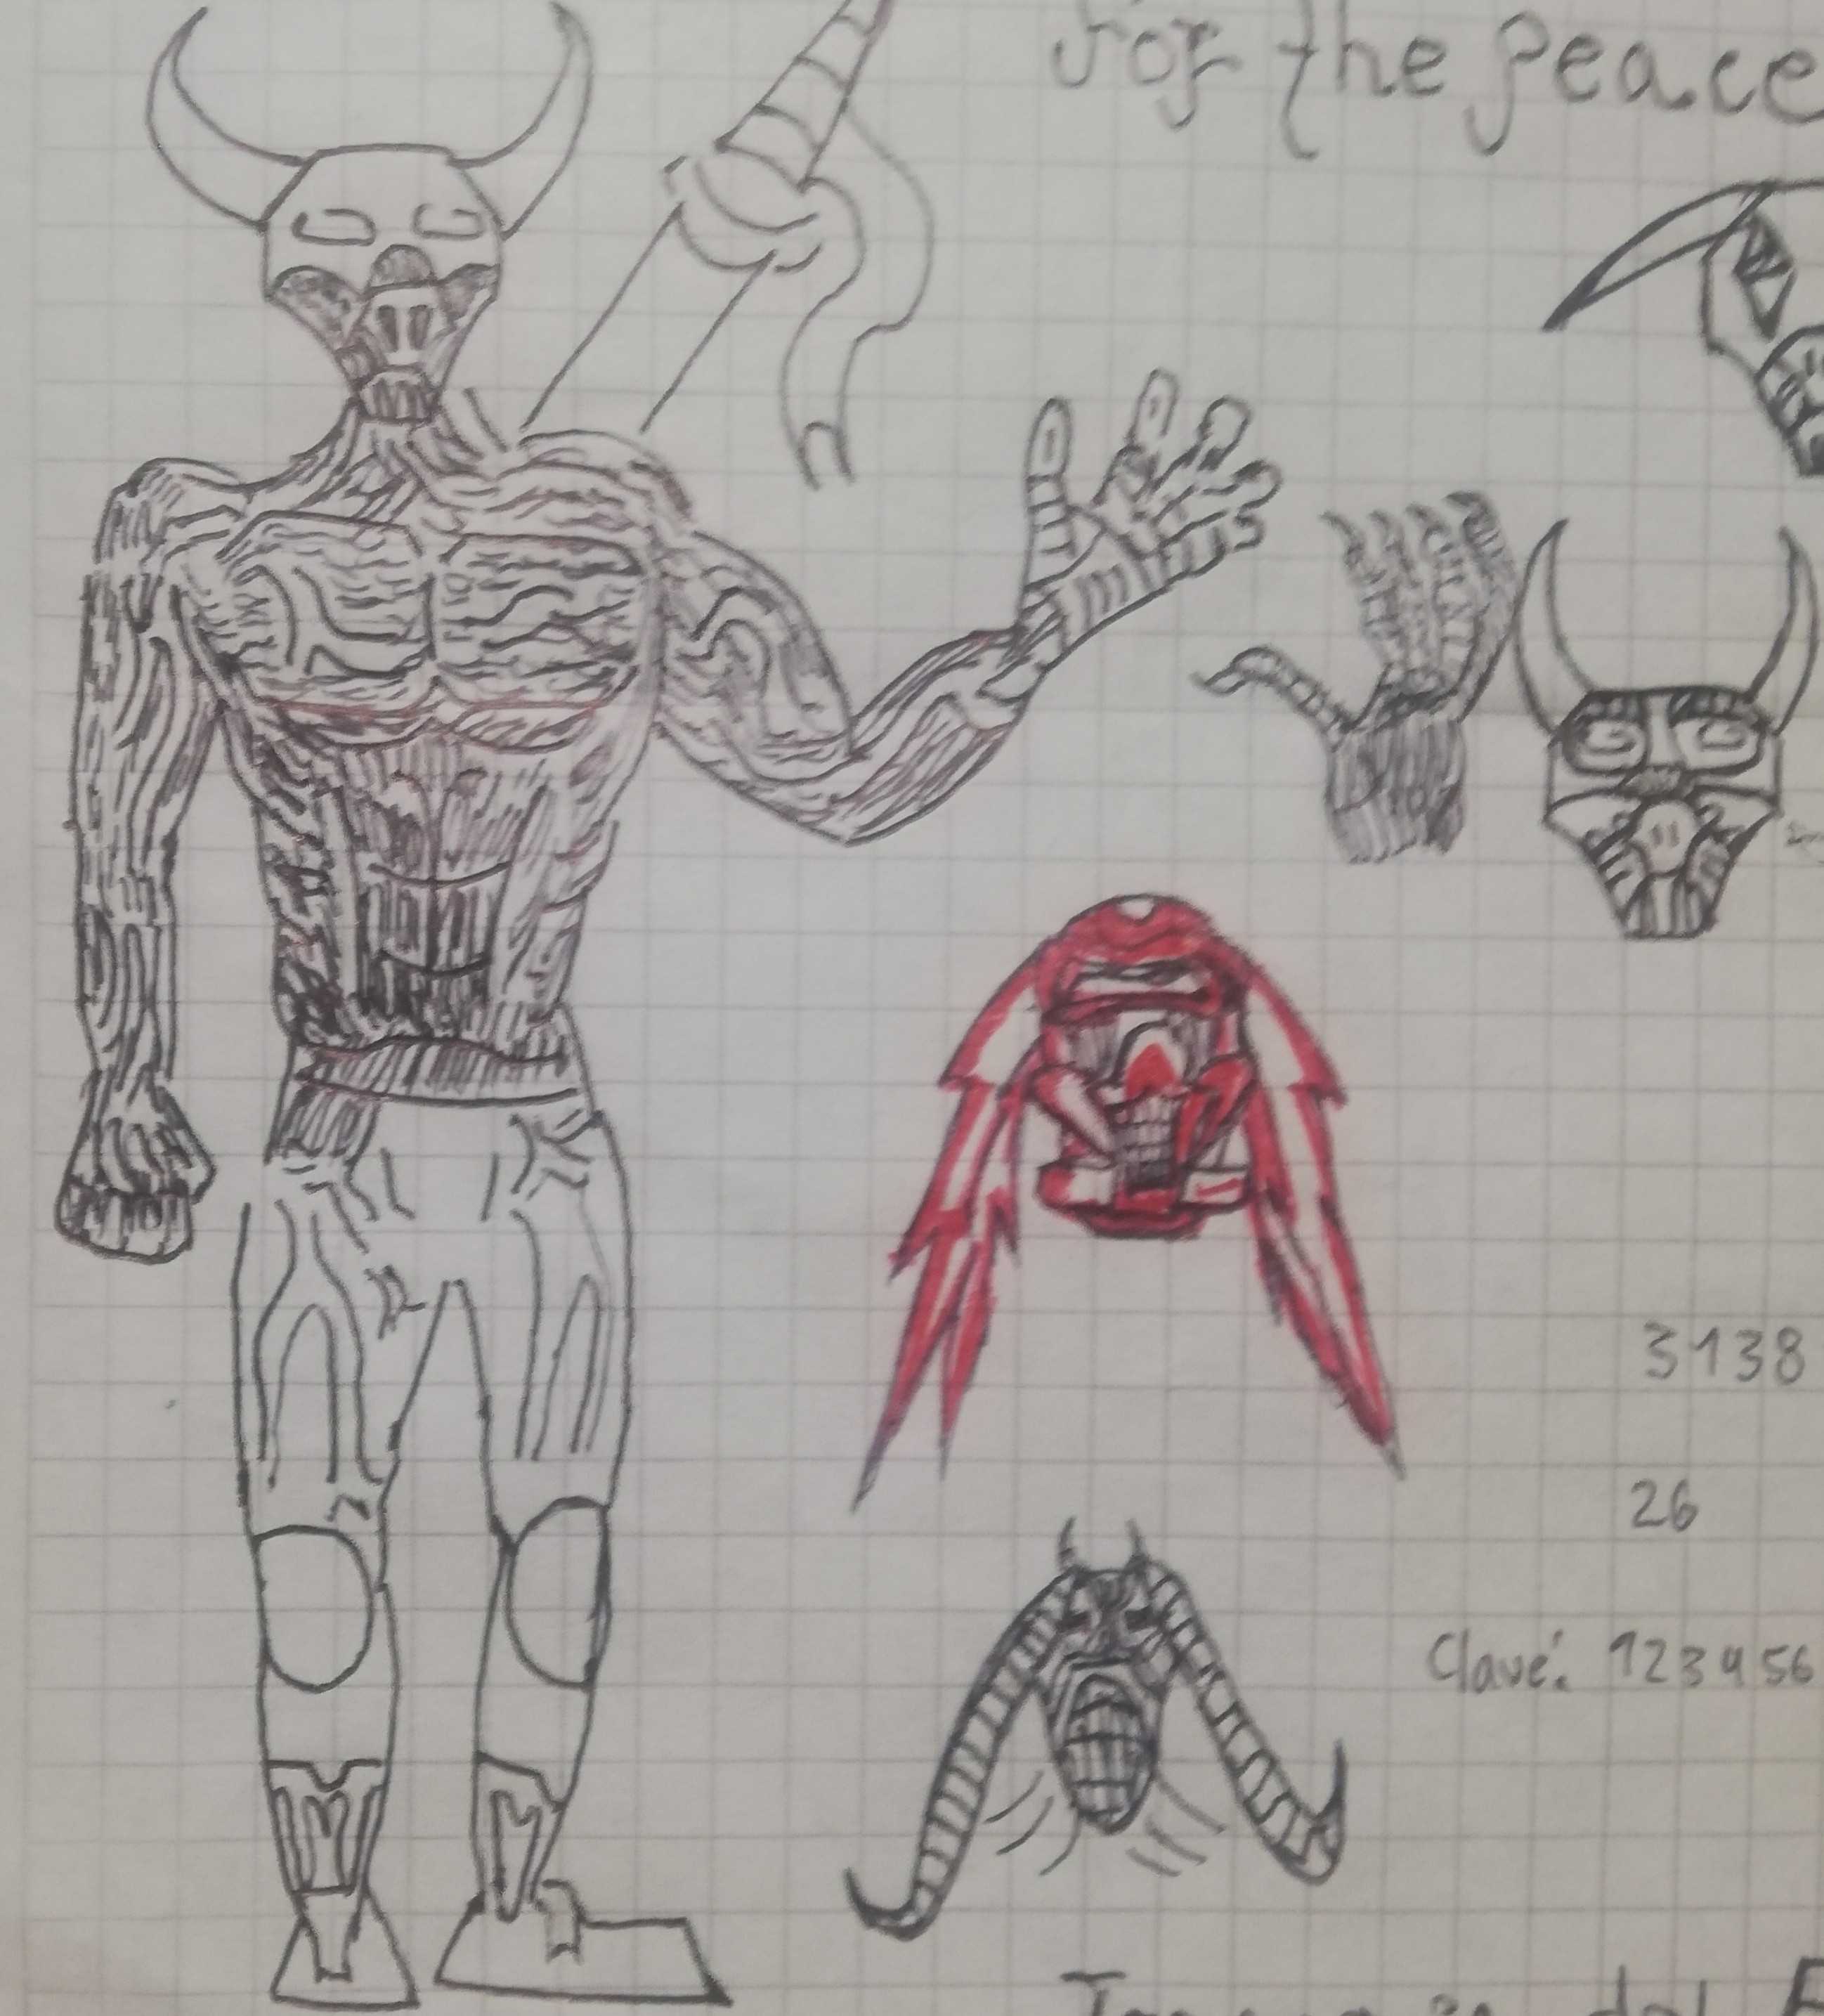 for the peace
3138
26
Clave: 123456